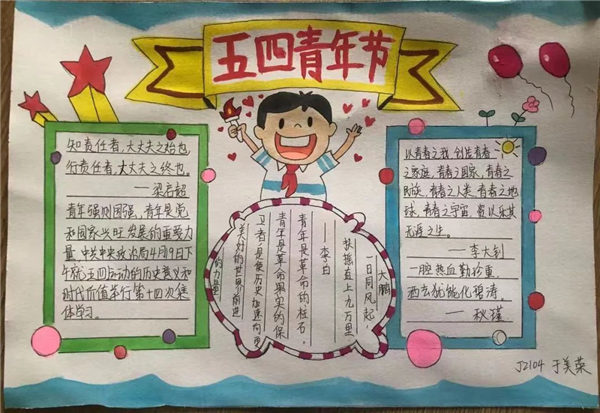 五四青年节
知责任者,大丈夫之始也
行责任者,大丈夫之终也。
——梁启超
青年强则国强,青年是党
和国家兴旺发展的重要力
量,中共中央政治局4月19日下
午就五四运动的历史意义和
时代价值举行第十四次集
体学习。
大鹏
一日同风起,
扶摇直上九万里
——李白
青年是革命的柱石,
青年是革命果实的保
卫者,是使历史加速向更
美好的世界前进
的力量
以青春之我,创造青春
之家庭,青春之国家,青春之
民族,青春之人类,青春之地
球,青春之宇宙,资以乐其
无涯之生。
——李大钊
一腔热血勤珍重
洒去犹能化碧涛。
——秋瑾
J2104 于美荣